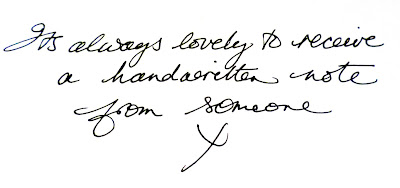 Its always lovely to receive
a handwritten note
from someone
X